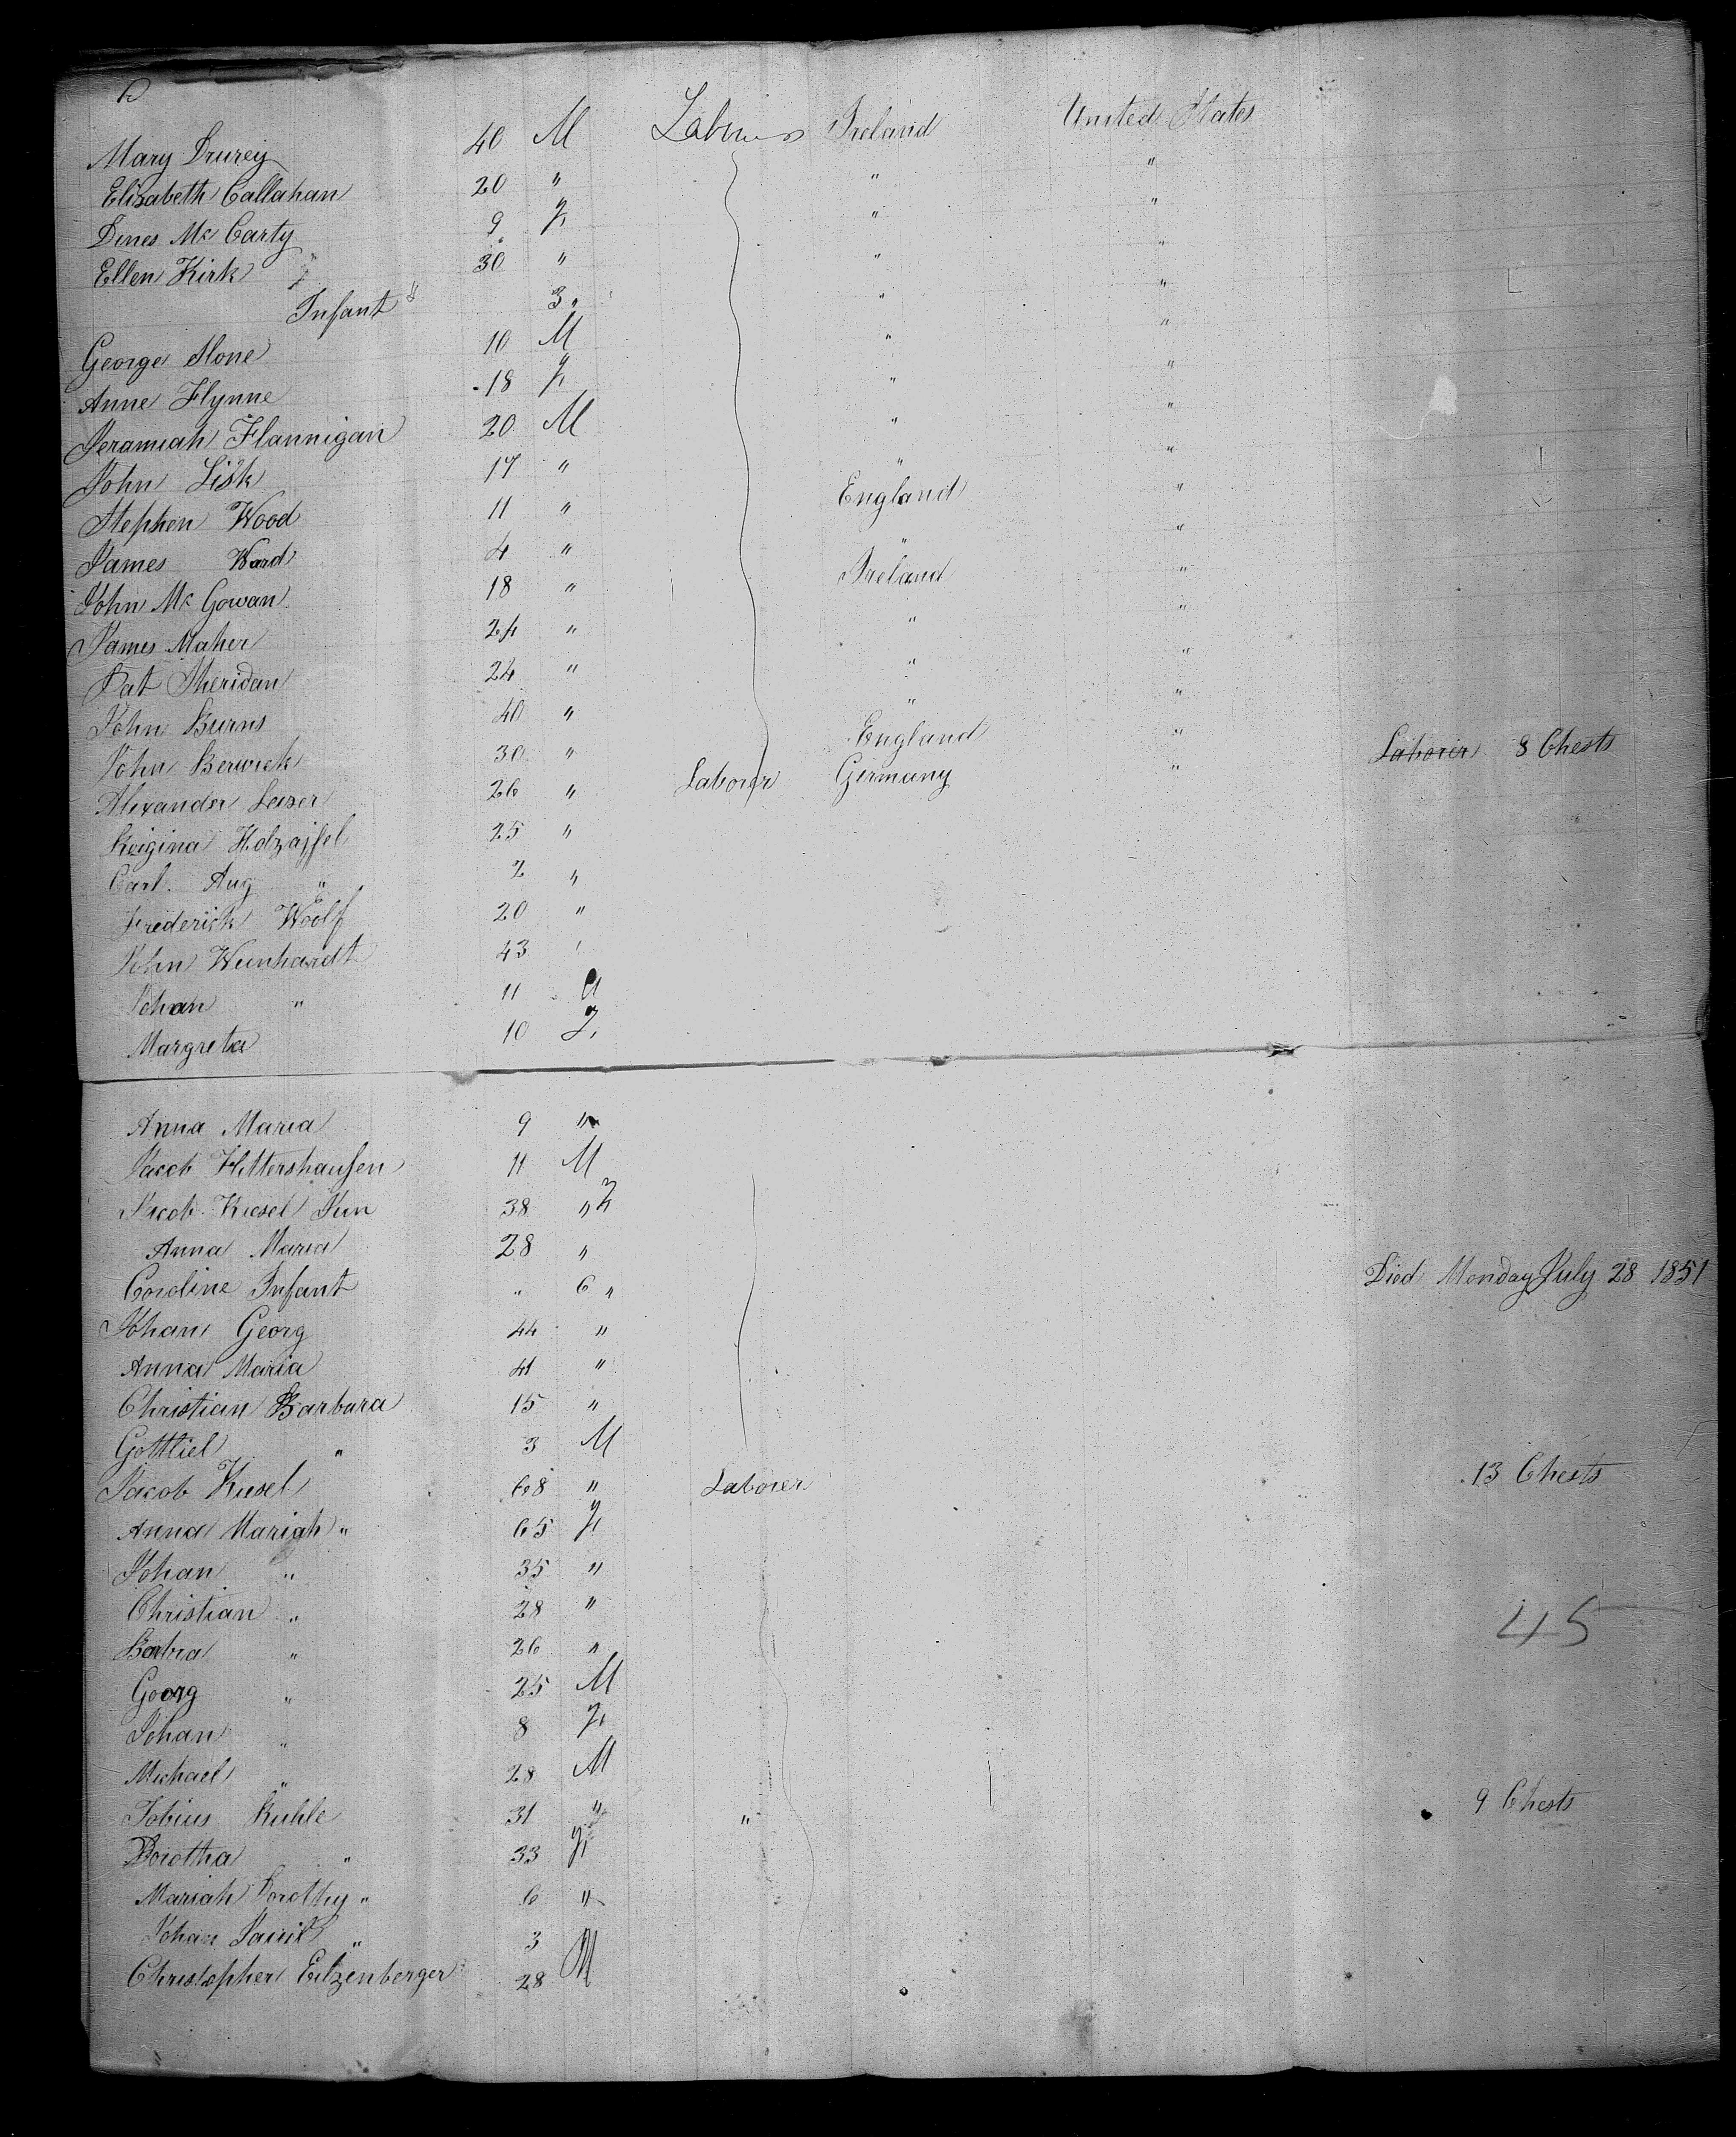 Mary Drurey 40 M Laborers Ireland United States
Elisabeth Callahan 20 " " "
Dines Mc Carty 9 F " "
Ellen Kirk " 30 " " "
Infant 3 " " "
George Slone 10 M " "
Anne Flynne 18 F " "
Jeramiah Flannigan 20 M " "
John Lisk 17 " " "
Stephen Wood 11 " England "
James Ward 4 " " "
John Mc Gowan 18 " Ireland "
James Maher 24 " " "
Pat Sheridan 24 " " "
John Burns 40 " " "
John Berwick 30 " England "
Alexander Leiser 26 " Laborer Germany " Laborer 8 Chests
Reigina Holzapfel 25 "
Carl. Aug " 2 "
Frederick Woolf 20 "
John Weinhardt 43 "
Johan " 11 M
Margreta 10 F
Anna Maria 9 "
Jacob Hittershausen 11 M
Jacob Kiesel Jun 38 " F
Anna Maria 28 "
Caroline Infant " 6 " Died Monday July 28 1851
Johan Georg 44 "
Anna Maria 41 "
Christian Barbara 15 "
Gottliel " 3 M
Jacob Kiesel 68 " Laborer 13 Chests
Anna Mariah " 65 F
Johan " 35 "
Christian " 28 "
Barbra " 26 " 45
Georg " 25 M
Johan " 8 F
Michael " 28 M
Tobius Kuhle 31 " " 9 Chests
Dorotha " 33 F
Mariah Dorothy " 6 "
Johan " 3 M
Christopher Eitzenberger 28